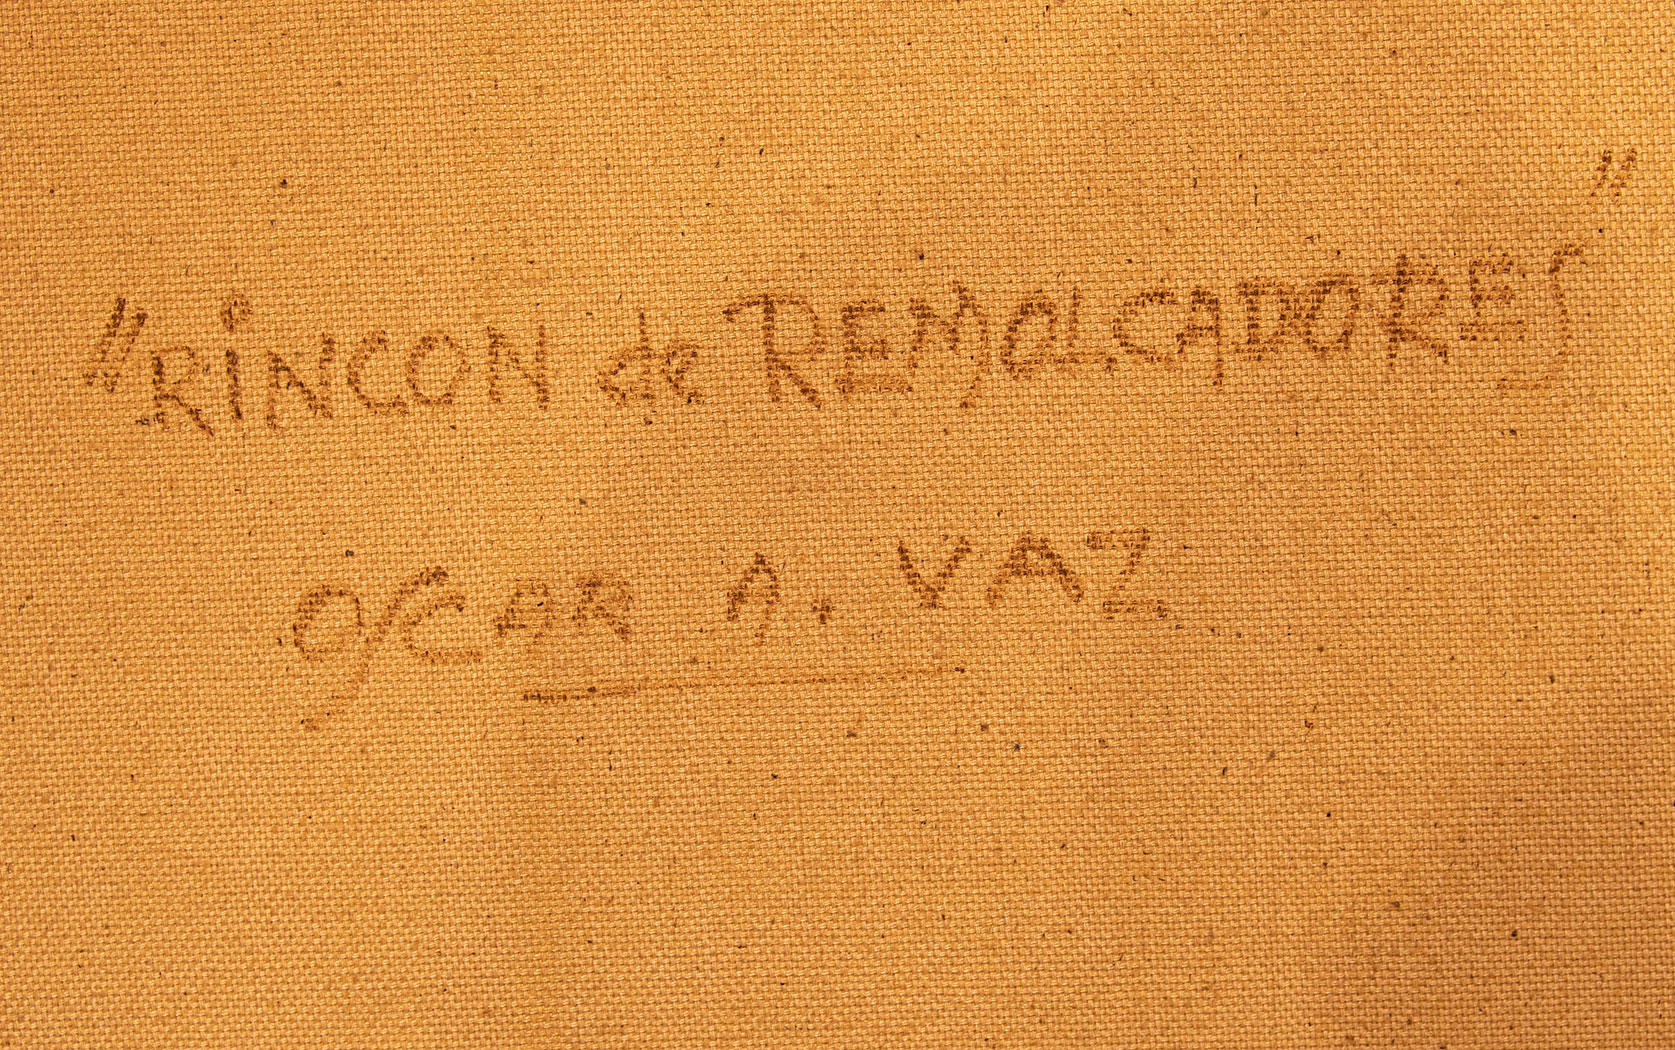 "RINCON de REMOLCADORES"
OSCAR A. VAZ